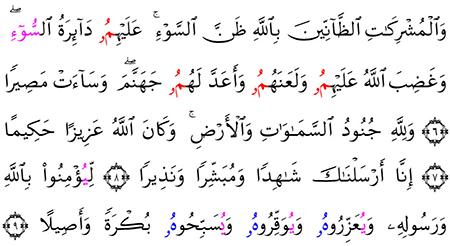 وَٱلْمُشْرِكَٰتِ ٱلظَّآنِّينَ بِٱللَّهِ ظَنَّ ٱلسَّوْءِۚ عَلَيْهِمُۥ دَآئِرَةُ ٱلسُّوٓءِۖ
وَغَضِبَ ٱللَّهُ عَلَيْهِمُۥ وَلَعَنَهُمُۥ وَأَعَدَّ لَهُمُۥ جَهَنَّمَۖ وَسَآءَتْ مَصِيرًا
﴿٦﴾ وَلِلَّهِ جُنُودُ ٱلسَّمَٰوَٰتِ وَٱلْأَرْضِۚ وَكَانَ ٱللَّهُ عَزِيزًا حَكِيمًا
﴿٧﴾ إِنَّآ أَرْسَلْنَٰكَ شَٰهِدًا وَمُبَشِّرًا وَنَذِيرًا ﴿٨﴾ لِّيُؤْمِنُوا۟ بِٱللَّهِ
وَرَسُولِهِۦ وَيُعَزِّرُوهُۥ وَيُوَقِّرُوهُۥ وَيُسَبِّحُوهُۥ بُكْرَةً وَأَصِيلًا ﴿٩﴾